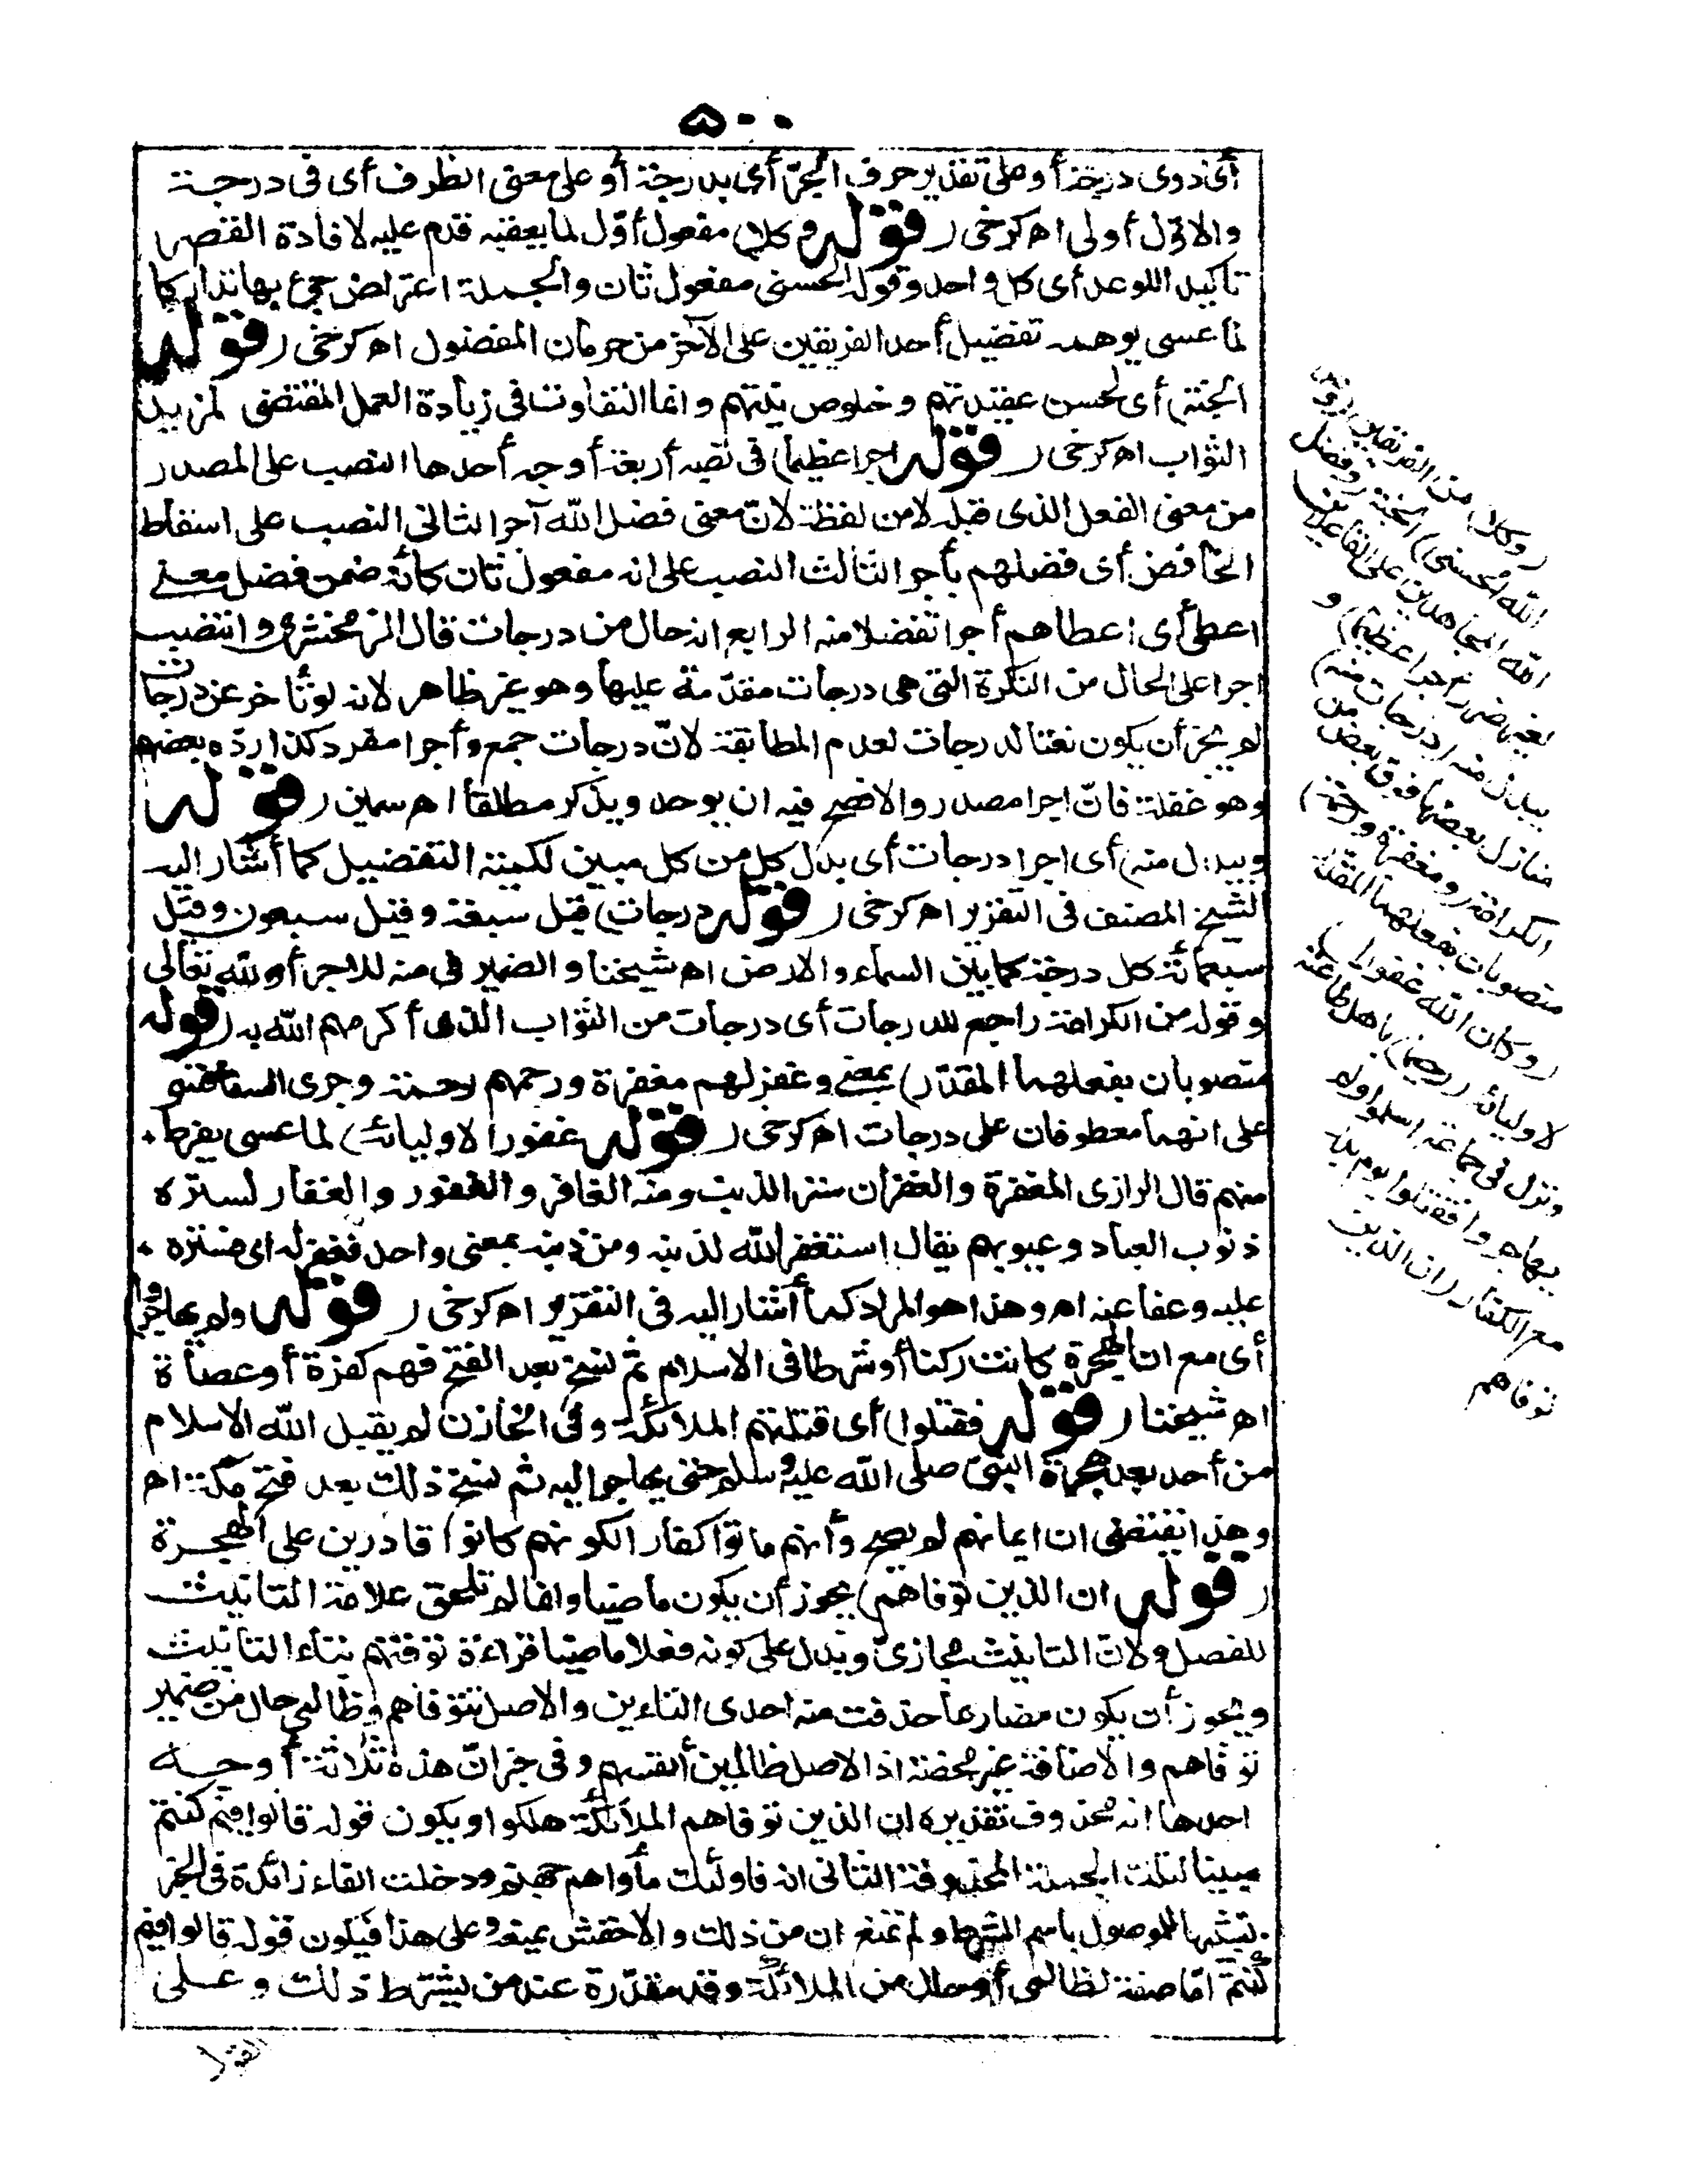 ۵۰۰
أى ذوى درجة أو على تقدير حرف الجرّ أى بدرجة أو على معنى الظرف أى فى درجة
والاوّل أولى اه كرخى (قوله وكلا) مفعول أوّل لما يعقبه قدم عليه لافادة القصر
تاكيد اللوعد أى كل واحد وقوله الحسنى مفعول ثان والجملة اعتراض جىء بها تداركا
لما عسى يوهمه تفضيل أحد الفريقين على الآخر من حرمان المفضول اه كرخى (قوله
الجنة) أى لحسن عقيدتهم وخلوص نيتهم وانما التفاوت فى زيادة العمل المقتضى لمزيد
الثواب اه كرخى (قوله اجرا عظيما) فى نصبه أربعة أوجه أحدها النصب على المصدر
من معنى الفعل الذى قبله لا من لفظه لانّ معنى فضل الله آجر الثانى النصب على اسقاط
الخافض أى فضلهم بأجر الثالث النصب على انه مفعول ثان كأنه ضمن فضل معنى
اعطى أى اعطاهم أجرا تفضلا منه الرابع انه حال من درجات قال الزمخشرى وانتصب
اجرا على الحال من النكرة التى هى درجات مقدّمة عليها وهو غير ظاهر لانه لو تأخر عن درجات
لم يجز أن يكون نعتا لدرجات لعدم المطابقة لانّ درجات جمع وأجرا مفرد كذا ردّه بعضهم
وهو غفلة فانّ اجرا مصدر والافصح فيه ان يوحد ويذكر مطلقا اه سمين (قوله
ويبدل منه) أى اجرا درجات أى بدل كل من كل مبين لكمية التفضيل كما أشار اليه
الشيخ المصنف فى التقرير اه كرخى (قوله درجات) قيل سبعة وقيل سبعون وقيل
سبعمائة كل درجة كما بين السماء والارض اه شيخنا والضمير فى منه للاجر أو لله تعالى
وقوله من الكرامة راجع للدرجات أى درجات من الثواب الذى أكرمهم الله به (قوله
منصوبان بفعلهما المقدّر) بمعنى وغفر لهم مغفرة ورحمهم رحمة وجرى السفاقسى
على انهما معطوفان على درجات اه كرخى (قوله غفورا لاوليائه) لما عسى يفرط
منهم قال الرازى المغفرة والغفران ستر الذنب ومنه الغافر والغفور والغفار لستره
ذنوب العباد وعيوبهم يقال استغفر الله لذنبه ومن ذنبه بمعنى واحد فغفر له اى فستره
عليه وعفا عنه اه وهذا هو المراد كما أشار اليه فى التقرير اه كرخى (قوله ولم يهاجروا)
أى مع ان الهجرة كانت ركنا أو شرطا فى الاسلام ثم نسخ بعد الفتح فهم كفرة أو عصاة
اه شيخنا (قوله فقتلوا) أى قتلتهم الملائكة وفى الخازن لم يقبل الله الاسلام
من أحد بعد هجرة النبىّ صلى الله عليه وسلم حتى يهاجر اليه ثم نسخ ذلك بعد فتح مكة اه
وهذا يقتضى ان ايمانهم لم يصح وأنهم ماتوا كفار الكونهم كانوا قادرين على الهجرة
(قوله ان الذين توفاهم) يجوز أن يكون ماضيا وانما لم تلحق علامة التانيث
للفصل ولانّ التانيث مجازىّ ويدل على كونه فعلا ماضيا قراءة توفتهم بتاء التانيث
ويجوز أن يكون مضارعا حذفت منه احدى التاءين والاصل تتوفاهم وظالمى حال من ضمير
توفاهم والاضافة غير محضة اذ الاصل ظالمين أنفسهم وفى خبر انّ هذه ثلاثة أوجه
احدها انه محذوف تقديره ان الذين توفاهم الملائكة هلكوا ويكون قوله قالوا فيم كنتم
مبينا لتلك الجملة المحذوفة الثانى انه فاولئك مأواهم جهنم ودخلت الفاء زائدة فى الخبر
تشبيها للموصول باسم الشرط ولم تمنع ان من ذلك والاخفش يمنعه وعلى هذا فيكون قوله قالوا فيم
كنتم امّا صفة لظالمى أو حال من الملائكة وقد مقدّرة عند من يشترط ذلك وعلى
القول
(وكلا) من الفريقين (وعد
الله الحسنى) الجنة (وفضل
الله المجاهدين على القاعدين)
لغير ضرر (اجرا عظيما) و
يبدل منه (درجات منه)
منازل بعضها فوق بعض من
الكرامة (ومغفرة ورحمة)
منصوبان بفعلهما المقدّر
(وكان الله غفورا)
لاوليائه (رحيما) باهل طاعته
ونزل فى جماعة اسلموا ولم
يهاجروا فقتلوا يوم بدر
مع الكفار (ان الذين
توفاهم